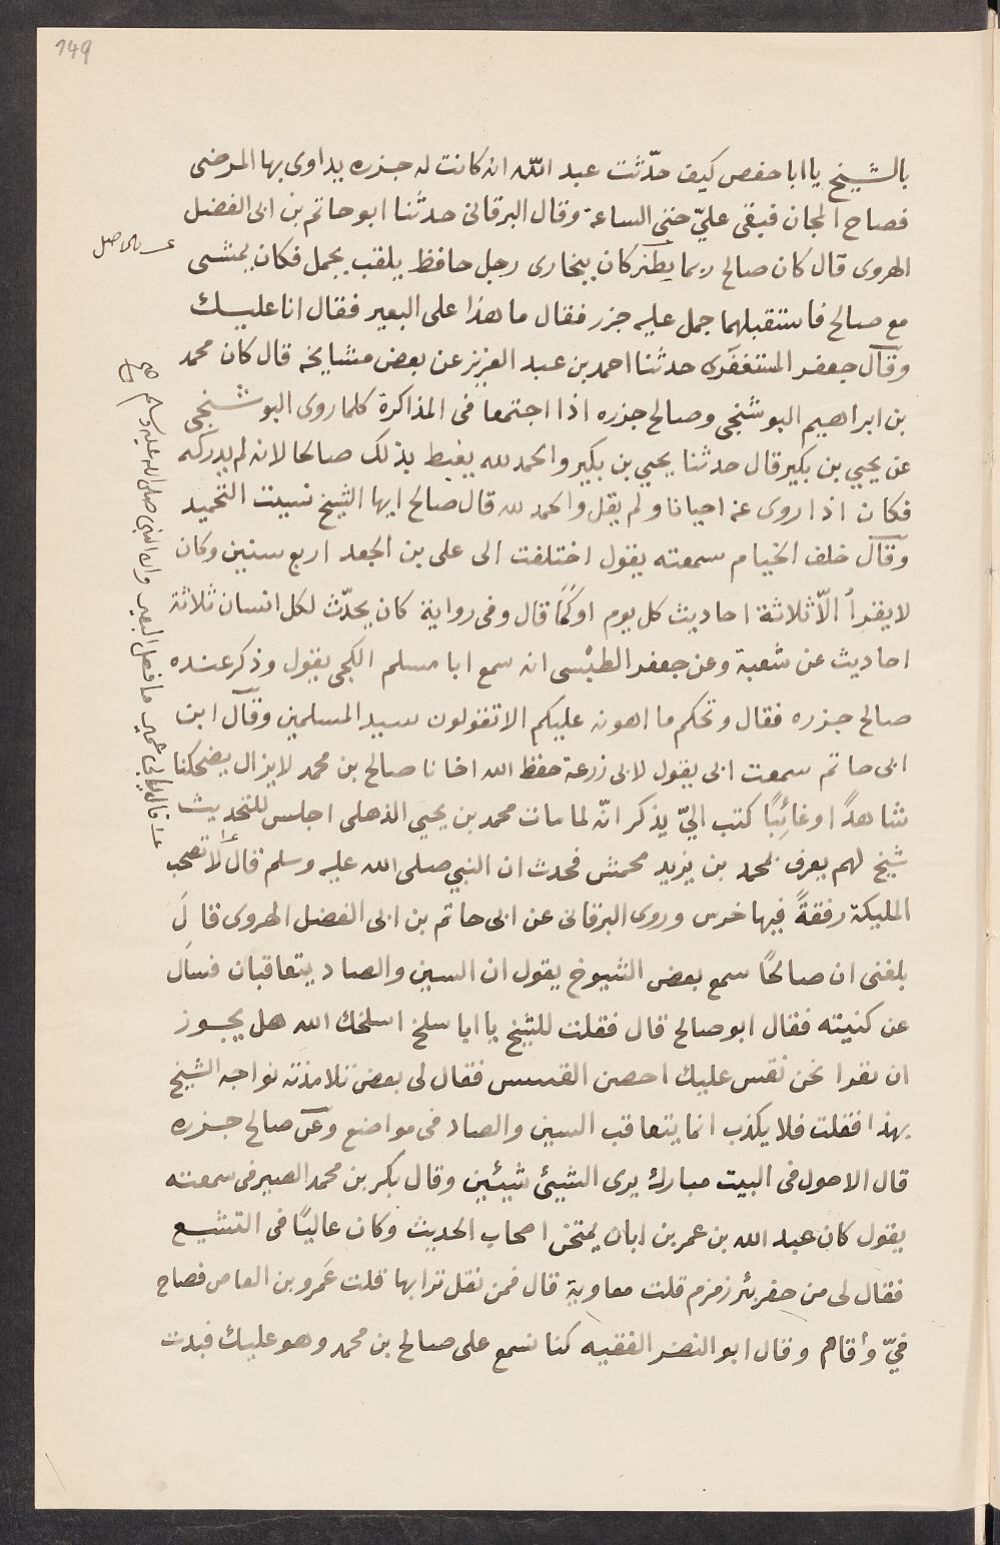 149
بالشيخ يا ابا حفص كيف حدّثت عبد الله انه كانت له جزره يداوى بها المرضى
فصاح المجان فبقى عليّ حتى الساعة وقال البرقانى حدثنا ابو حاتم بن ابى الفضل
الهروى قال كان صالح ربما يطنز كان ببخارى رجل حافظ يلقب بجمل فكان يمشى
مع صالح فاستقبلهما جمل عليه جزر فقال ما هذا على البعير فقال انا عليك
وقال جعفر المستغفرى حدثنا احمد بن عبد العزيز عن بعض مشايخه قال كان محمد
بن ابراهيم البوشنجى وصالح جزره اذا اجتمعا فى المذاكرة كلما روى البوشنجى
عن يحيى بن بكير قال حدثنا يحيى بن بكير والحمد لله يغبط بذلك صالحا لانه لم يدركه
فكان اذا روى عنه احيانا ولم يقل والحمد لله قال صالح ايها الشيخ نسيت التحميد
وقال خلف الخيام سمعته يقول اختلفت الى على بن الجعد اربع سنين وكان
لا يقرأ الّا ثلاثة احاديث كل يوم او كما قال وفى رواية كان يحدّث لكل انسان ثلاثة
احاديث عن شعبة وعن جعفر الطبْسى انه سمع ابا مسلم الكجى يقول وذكر عنده
صالح جزره فقال ويحكم ما اهونه عليكم الا تقولون سيد المسلمين وقال ابن
ابى حاتم سمعت ابى يقول لابى زرعة حفظ الله اخانا صالح بن محمد لا يزال يضحكنا
شاهدًا او غائبًا كتب اليّ يذكر انّه لما مات محمد بن يحيى الذهلى اجلس للتحديث
شيخ لهم يعرف بمحمد بن يزيد محمش فحدث ان النبي صلى الله عليه وسلم قال لا تصحب
المليكة رفقةً فيها خرس وروى البرقانى عن ابى حاتم بن ابى الفضل الهروى قال
بلغنى ان صالحًا سمع بعض الشيوخ يقول ان السين والصاد يتعاقبان فسال
عن كنيته فقال ابو صالح قال فقلت للشيخ يا ابا سلخ اسلخك الله هل يجوز
ان نقرا نحن نقس عليك احصن القسس فقال لى بعض تلامذته تواجه الشيخ
بهذا فقلت فلا يكذب انما يتعاقب السين والصاد فى مواضع وعن صالح جزره
قال الاحول فى البيت مبارك يرى الشيئ شيئين وقال بكر بن محمد الصيرفى سمعته
يقول كان عبد الله بن عمر بن ابان يمتحن اصحاب الحديث وكان غاليًا فى التشيع
فقال لى من حفر بئر زمزم قلت معاوية قال فمن نقل ترابها قلت عمرو بن العاص فصاح
فيّ وأقام وقال ابو النضر الفقيه كنا نسمع على صالح بن محمد وهو عليك فبدت
قال يا ابا عمير ما فعل البعير وان النبى صلى الله عليه وسلم صح